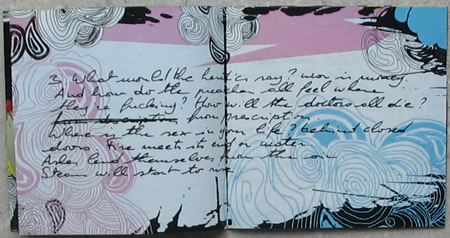 3. What would the heretics say? war is money
And how do the preachers all feel where
they're fucking? How will the doctors all die?
from prescription
Where is the sex in your life? behind closed
doors Fire meets it end or water
Ashes lend themselves from the
Steam will start to